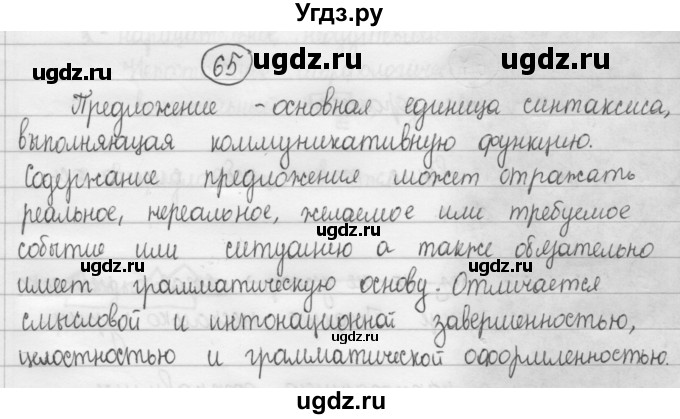 Угдз.ру
65
Предложение - основная единица синтаксиса,
выполняющая коммуникативную функцию.
Содержание предложения может отражать
реальное, нереальное, желаемое или требуемое
событие или ситуацию а также обязательно
имеет грамматическую основу. Отличается
смысловой и интонационной завершенностью,
целостностью и грамматической оформленностью.
ugdz.ru
ugdz.ru
ugdz.ru
ugdz.ru
ugdz.ru
ugdz.ru
ugdz.ru
ugdz.ru
ugdz.ru
ugdz.ru
ugdz.ru
ugdz.ru
ugdz.ru